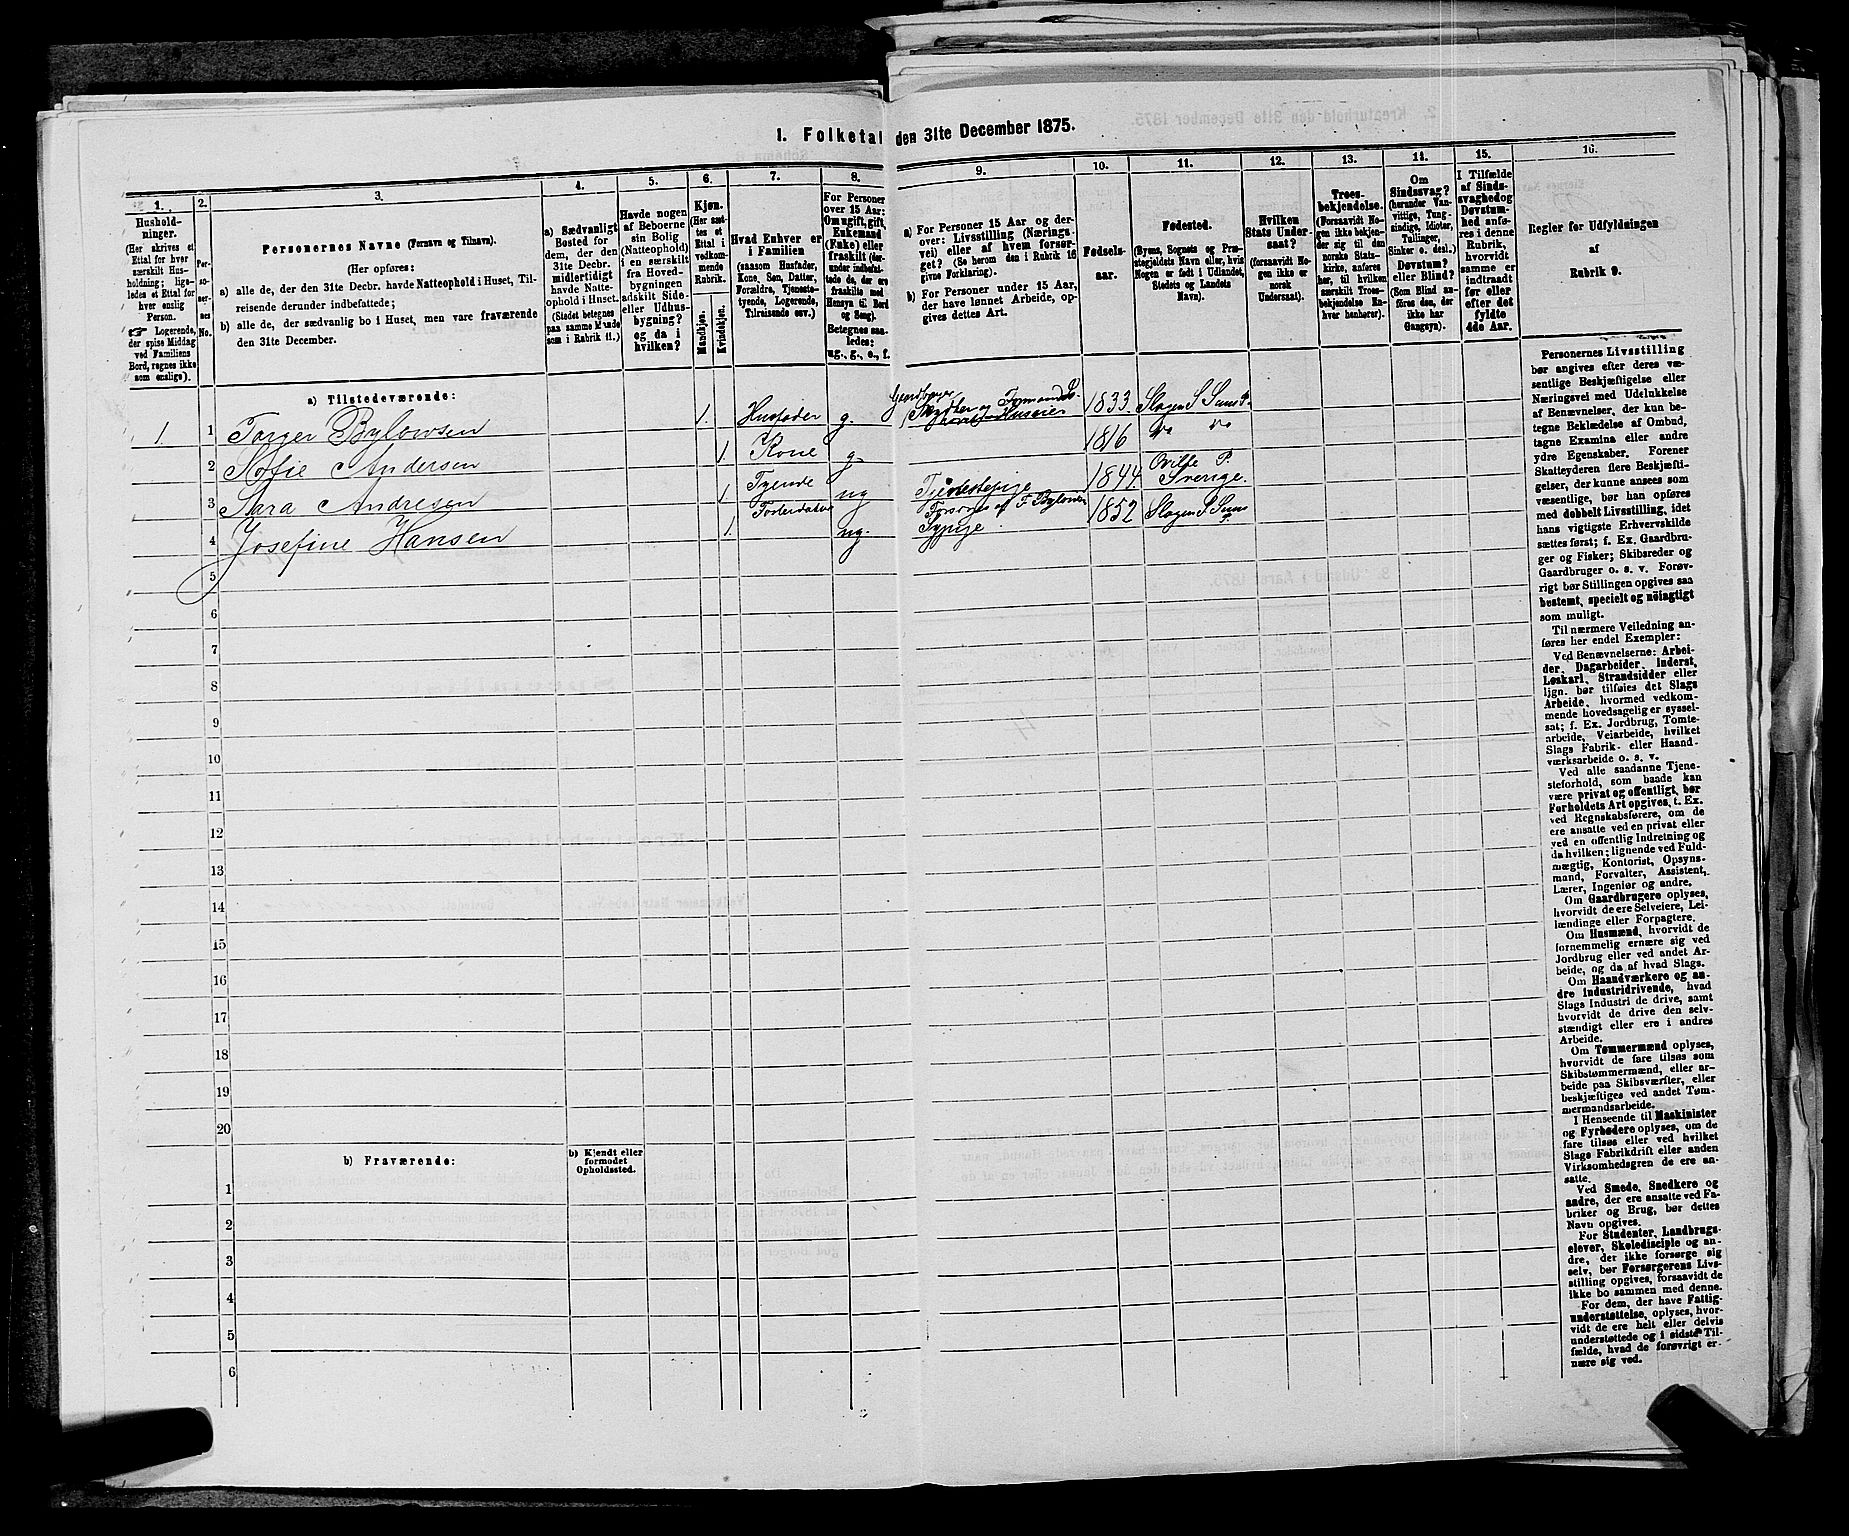 1. Folketal den 31te December 1875.
1.
2.
3.
4.
5.
6.
7.
8.
9.
10.
11.
12.
13.
14.
15.
16.
Hushold-
ninger.
(Her skrives et
Ettal for hver
særskilt Hus-
holdning; lige-
ledes et Ettal for
hver enslig
Person.
☞ Logerende,
der spise Middag
ved Familiens
Bord, regnes ikke
som enslige).
Per-
so-
ner-
nes
No.
Personernes Navne (Fornavn og Tilnavn).
(Her opføres:
a) alle de, der den 31te Decbr. havde Natteophold i Huset, Til-
reisende derunder indbefattede;
b) alle de, der sædvanlig bo i Huset, men vare fraværende
den 31te December.
a) Sædvanligt
Bosted for
dem, der den
31te Decbr.
midlertidigt
havde Natte-
ophold i Huset.
(Stedet betegnes
paa samme Maade
som i Rubrik 11.)
Havde nogen
af Beboerne
sin Bolig
(Natteophold)
i en særskilt
fra Hoved-
bygningen
adskilt Side-
eller Udhus-
bygning?
og da i
hvilken?
Kjøn.
(Her sæt-
tes et
Ettal i
vedkom-
mende
Rubrik.
Mandkjøn.
Kvindekjøn.
Hvad Enhver er
i Familien
(saasom Husfader,
Kone, Søn, Datter,
Forældre, Tjeneste-
tyende, Logerende,
Tilreisende osv.)
For Personer
over 15 Aar:
Om ugift, gift,
Enkemand
(Enke) eller
fraskilt (der-
under indbefat-
tede de, der ere
fraskilte med
Hensyn til Bord
og Seng).
Betegnes saa-
ledes:
ug., g., e., f.
a) For Personer 15 Aar og der-
over: Livsstilling (Nærings-
vei) eller af hvem forsør-
get? (Se herom den i Rubrik 16
givne Forklaring).
b) For Personer under 15 Aar,
der have lønnet Arbeide, op-
gives dettes Art.
Fødsels-
aar.
Fødested.
(Byens, Sognets og Præ-
stegjeldets Navn eller, hvis
Nogen er født i Udlandet,
Stedets og Landets
Navn).
Hvilken
Stats Under-
saat?
(forsaavidt No-
gen ikke er
norsk
Undersaat).
Troes-
bekjendelse.
(Forsaavidt No-
gen ikke bekjen-
der sig til den
norske Stats-
kirke, anføres
her, til hvilken
særskilt Troes-
bekjendelse En-
hver henhører).
Om
Sindssvag?
(herunder Van-
vittige, Tung-
sindige, Idioter,
Tullinger,
Sinker o. desl.)
Døvstum?
eller Blind?
(Som Blind an-
føres den, der
ikke har
Gangsyn).
I Tilfælde
af Sinds-
svaghed og
Døvstum-
hed anfø-
res i denne
Rubrik,
hvorvidt
samme er
indtraadt
før eller
efter det
fyldte
4de Aar.
Regler for Udfyldningen
af
Rubrik 9.
a) Tilstedeværende:
1. 1 Torger Bylowsen 1. Husfader g. Gaardbruger 1833. Slagen S Sems P.
2 Sofie Andersen 1. Kone g. 1816 do do
3 Sara Andresen 1. Tyende ug Tjenestepige 1844. P. Sverige.
4 Josefine Hansen 1. ug. Forsørges af T. Bylowsen Sypige. 1852 Slagen S Sems P.
5
6
7
8
9
10
11
12
13
14
15
16
17
18
19
20
b) Fraværende:
b) Kjendt eller
formodet
Opholdssted.
1
2
3
4
5
6
Personernes Livsstilling
bør angives efter deres væ-
sentlige Beskjæftigelse eller
Næringsvei med Udelukkelse
af Benævnelser, der kun be-
tegne Beklædelse af Ombud,
tagne Examina eller andre
ydre Egenskaber. Forener
Skatteyderen flere Beskjæfti-
gelser, der kunne ansees som
væsentlige, bør han opføres
med dobbelt Livsstilling, idet
hans vigtigste Erhvervskilde
sættes først; f. Ex. Gaardbru-
ger og Fisker; Skibsreder og
Gaardbruger o. s. v. Forøv-
rigt bør Stillingen opgives saa
bestemt, specielt og nøiagtigt
som muligt.
Til nærmere Veiledning an-
føres her endel Exempler:
Ved Benævnelserne: Arbei-
der, Dagarbeider, Inderst,
Løskarl, Strandsidder eller
lign. bør tilføies det Slags
Arbeide, hvormed vedkom-
mende hovedsagelig er syssel-
sat; f. Ex. Jordbrug, Tomte-
arbeide, Veiarbeide, hvilket
Slags Fabrik- eller Haand-
værksarbeide o. s. v.
Ved alle saadanne Tjene-
steforhold, som baade kan
være privat og offentligt, bør
Forholdets Art opgives, t. Ex.
ved Regnskabsførere, om de
ere ansatte ved en privat eller
ved en offentlig Indretning og
da hvilken; lignende ved Fuld-
mægtig, Kontorist, Opsyns-
mand, Forvalter, Assistent,
Lærer, Ingeniør og andre.
Om Gaardbrugere oplyses,
hvorvidt de ere Selveiere, Lei-
lændinge eller Forpagtere.
Om Husmænd, hvorvidt de
fornemmelig ernære sig ved
Jordbrug eller ved andet Ar-
beide, og da af hvad Slags.
Om Haandværkere og an-
dre industridrivende, hvad
Slags Industri de drive, samt
hvorvidt de drive den selv-
stændigt eller ere i andres
Arbeide.
Om Tømmermænd oplyses,
hvorvidt de fare tilsøs som
Skibstømmermænd, eller ar-
beide paa Skibsværfter, eller
beskjæftiges ved andet Tøm-
mermandsarbeide.
I Henseende til Maskinister
og Fyrbødere oplyses, om de
fare tilsøs eller ved hvilket
Slags Fabrikdrift eller anden
Virksomhedsgren de ere an-
satte.
Ved Smede, Snedkere og
andre, der ere ansatte ved Fa-
briker og Brug, bør dettes
Navn opgives.
For Studenter, Landbrugs-
elever, Skoledisciple og an-
dre, der ikke forsørge sig
selv, bør Forsørgerens Livs-
stilling opgives, forsaavidt de
ikke bo sammen med denne.
For dem, der have Fattig-
understøttelse, oplyses, hvor-
vidt de ere helt eller delvis
understøttede og i sidste Til-
fælde, hvad de forøvrigt er-
nære sig ved.